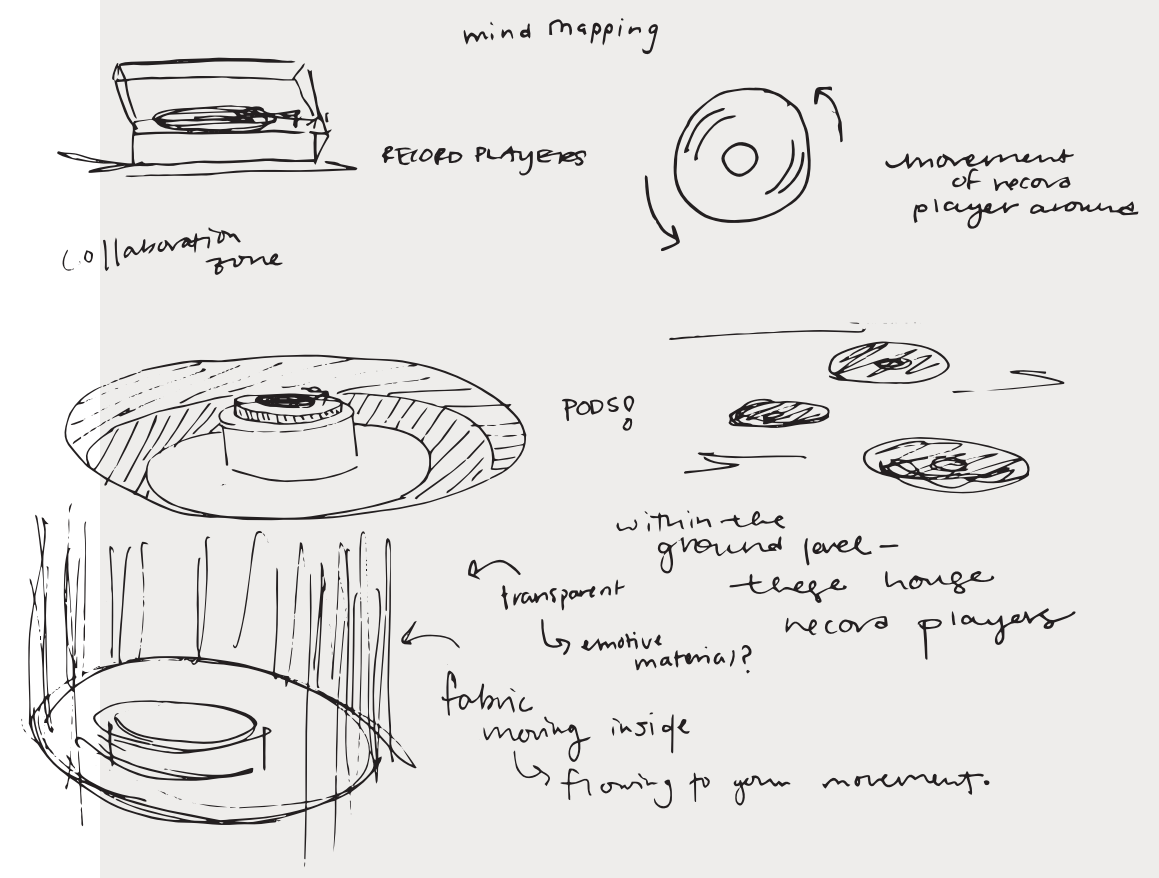 mind mapping
RECORD PLAYERS
movement
of record
player around
collaboration
zone
PODS!
within the
ground level -
these house
record players
transparent
emotive
material?
fabric
moving inside
flowing to your movement.